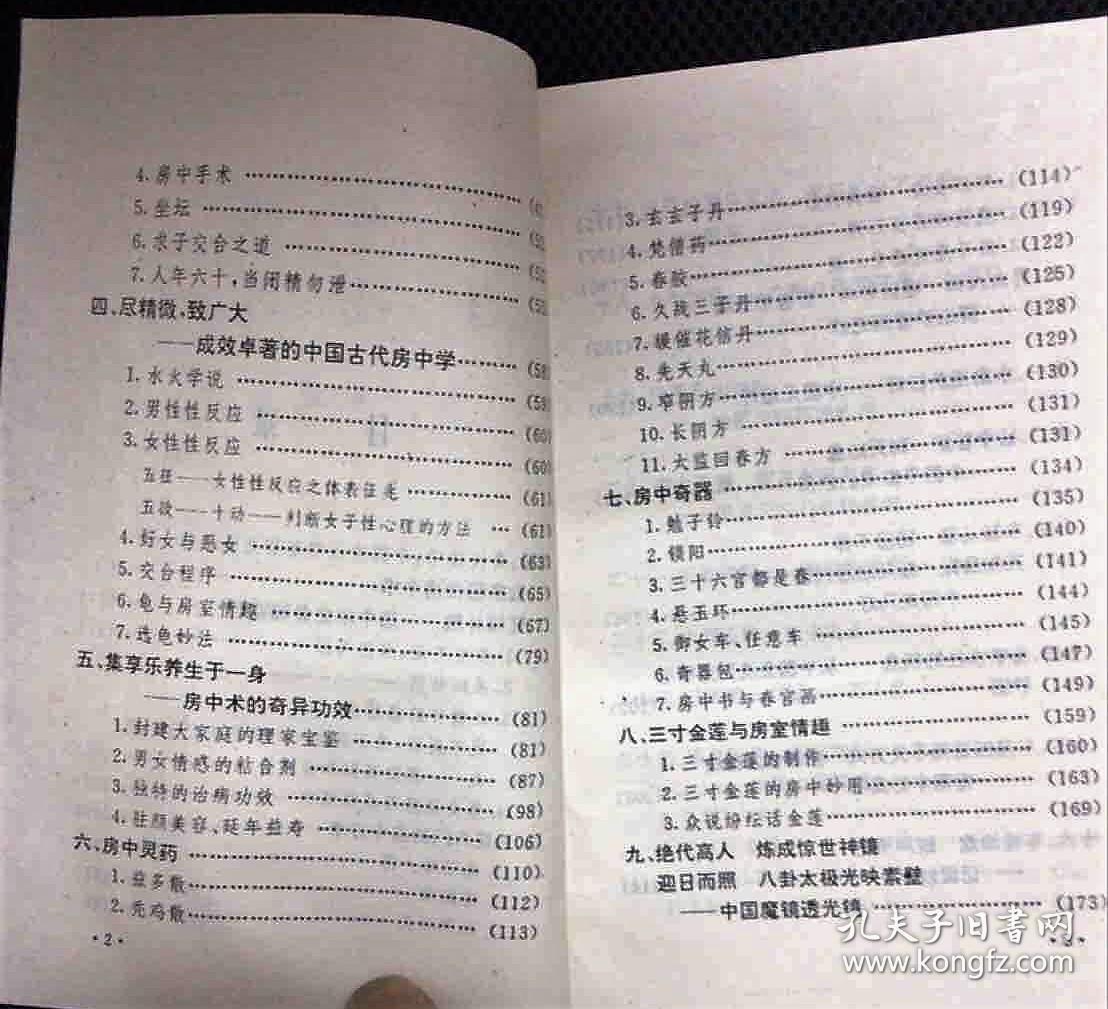 4. 房中手术 ……………………
5. 坐坛 ……………………
6. 求子交合之道 ……………………
7. 人年六十，当闭精勿泄……………………
四、尽精微，致广大
——成效卓著的中国古代房中学……………
1. 水火学说 ……………………
2. 男性性反应 …………………… (60)
3. 女性性反应 …………………… (60)
五征——女性性反应之体表征 …………… (61)
五欲——十动——判断女子性心理的方法 … (61)
4. 好女与恶女 …………………… (63)
5. 交合程序 …………………… (65)
6. 龟与房室情趣 …………………… (67)
7. 选色妙法 …………………… (79)
五、集享乐养生于一身
——房中术的奇异功效…………… (81)
1. 封建大家庭的理家宝鉴 …………… (81)
2. 男女情感的粘合剂 …………… (87)
3. 独特的治病功效 …………… (98)
4. 驻颜美容、延年益寿 …………… (106)
六、房中灵药 …………………… (110)
1. 益多散 …………………… (112)
2. 秃鸡散 …………………… (113)
·2·
3. 玄玄子丹 …………………… (114)
4. 梵僧药 …………………… (119)
5. 春胶 …………………… (122)
6. 久战三子丹 …………………… (125)
7. 暖催花信丹 …………………… (128)
8. 先天丸 …………………… (129)
9. 窄阴方 …………………… (130)
10. 长阴方 …………………… (131)
11. 大监回春方 …………………… (131)
七、房中奇器 …………………… (134)
1. 勉子铃 …………………… (135)
2. 锁阳 …………………… (140)
3. 三十六宫都是春 …………………… (141)
4. 悬玉环 …………………… (144)
5. 御女车、任意车 …………………… (145)
6. 奇器包 …………………… (147)
7. 房中书与春宫画 …………………… (149)
八、三寸金莲与房室情趣 …………………… (159)
1. 三寸金莲的制作 …………………… (160)
2. 三寸金莲的房中妙用 …………………… (163)
3. 众说纷纭话金莲 …………………… (169)
九、绝代高人 炼成惊世神镜
迎日而照 八卦太极光映素壁
——中国魔镜透光镜 …………… (173)
·3·
孔夫子旧书网
www.kongfz.com